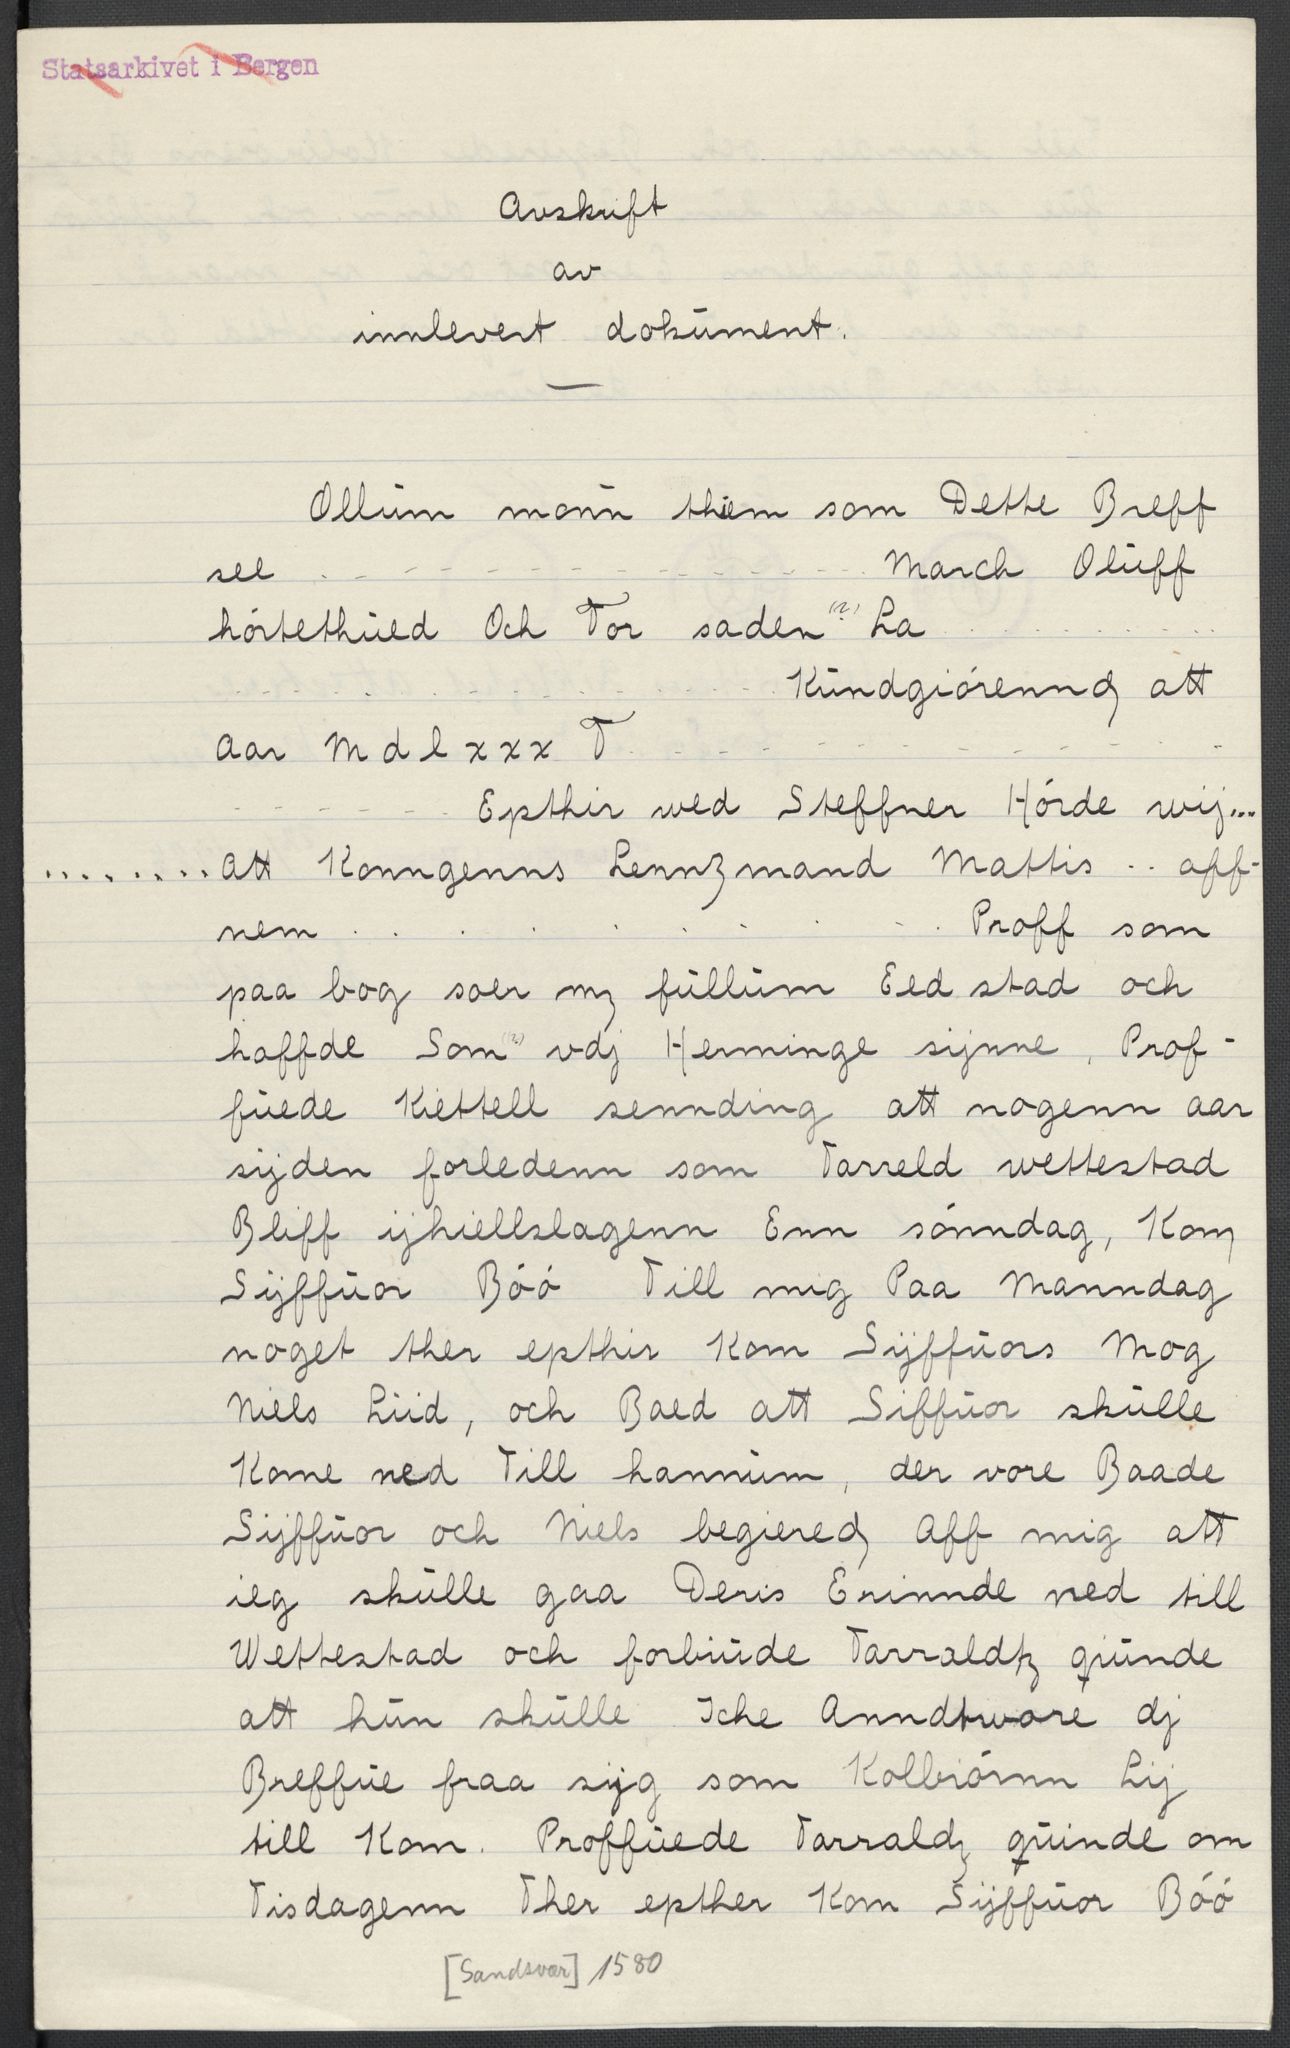 Statsarkivet i Bergen
Avskrift
av
innlevert dokument.
Ollum monn them som Dette Breff
see - - - - - - - - - - - - - - - - - March Oluff
hórtethued Och Tor saden (?) La . . . . . . . . .
- - - - - - - - - - - - - - - - Kundgiórennd att
Aar M d l x x x T - - - - - - - - - - - - -
- - - - - - - Epthir wed Steffner Hórde wij...
......... att Konngenns Lennzmand Mattis .. aff-
nem . . . . . . . . . . Proff som
paa bog soer mz fullum Eed stad och
haffde Som (?) vdj Herminge sijnne, Prof-
fuede Kiettell sennding att nogenn aar
sijden forledenn som Tarreld wettestad
Bliff ijhiellslagenn Enn sónndag, Kom
Sijffuor Bóó Till mig Paa Manndag
noget ther epthir Kom Sijffuors Mog
Niels Liid, och Baed att Siffuor skulle
Kome ned Till hannum, der vore Baade
Sijffuor och Niels begiered Aff mig att
ieg skulle gaa Deris Erinnde ned till
Wettestad och forbiude Tarraldtz quinde
att hun skulle Icke Anndtwore dj
Breffue fraa sijg som Kolbiórnn Lij
till Kom. Proffuede Tarraldz quinde om
Tisdagenn Ther epther Kom Sijffuor Bóó
[Sandsvær] 1580